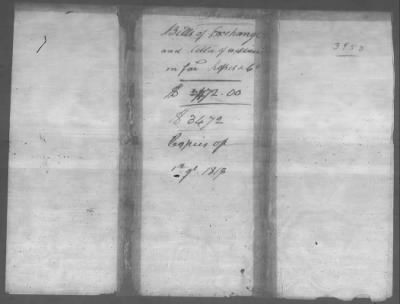 Bills of Exchange
and letter of advice
in fav
$ 3472.00
$ 3472
Copies of
1st qr 1818
3953